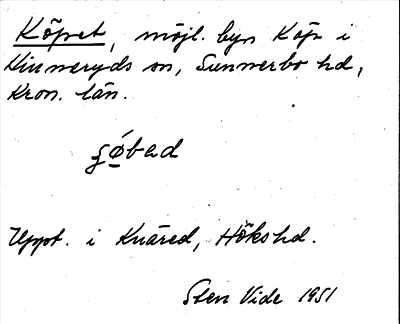 Köpet, möjl. byn Köp i
Kinneryds sn, Sunnerbo hd,
Kron. län.
Uppt. i Knäred, Höks hd.
Sten Vide 1951